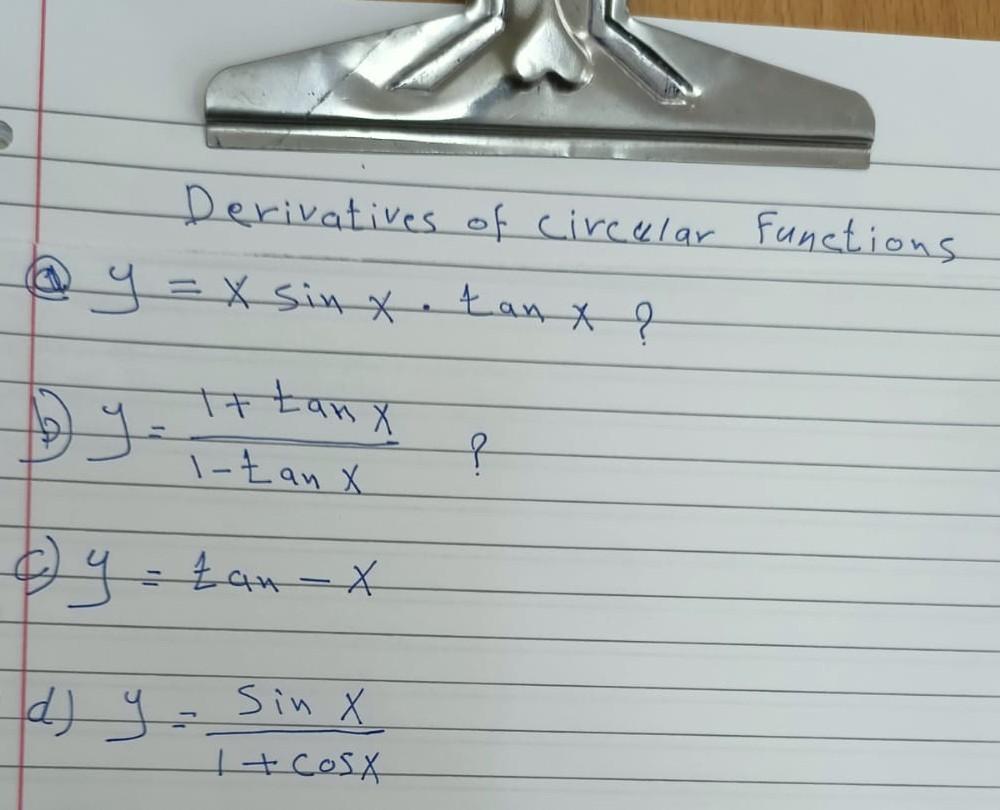 Derivatives of circular Functions
a) y = x sin x . tan x ?
b) y = 1 + tan x / 1 - tan x ?
c) y = tan - x
d) y = sin x / 1 + cos x